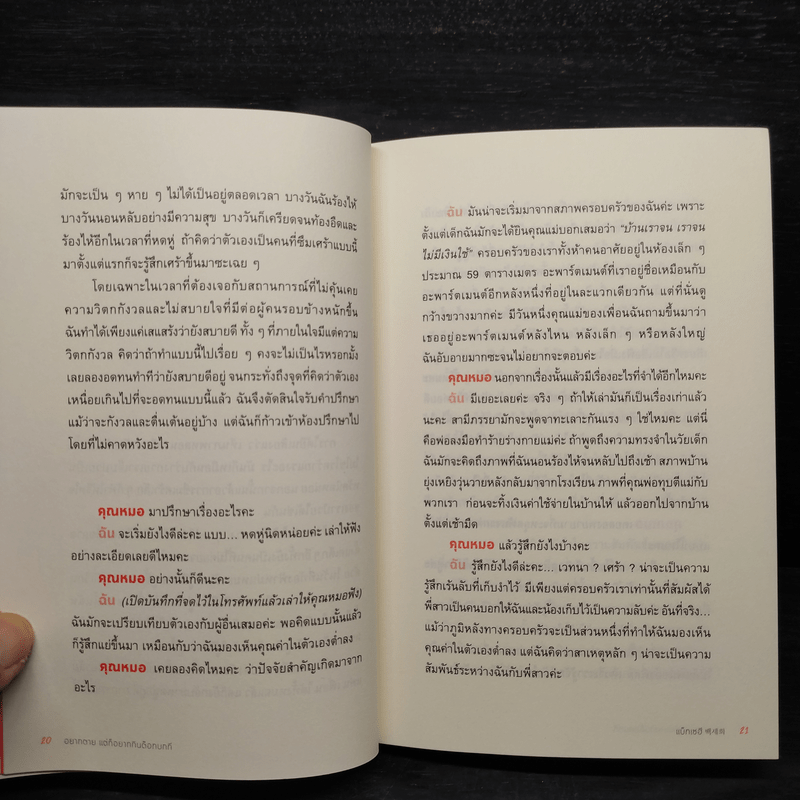 มักจะเป็น ๆ หาย ๆ ไม่ได้เป็นอยู่ตลอดเวลา บางวันฉันร้องไห้
บางวันนอนหลับอย่างมีความสุข บางวันก็เครียดจนท้องอืดและ
ร้องไห้อีกในเวลาที่หดหู่ ถ้าคิดว่าตัวเองเป็นคนที่ซึมเศร้าแบบนี้
มาตั้งแต่แรกก็จะรู้สึกเศร้าขึ้นมาซะเฉย ๆ
โดยเฉพาะในเวลาที่ต้องเจอกับสถานการณ์ที่ไม่คุ้นเคย
ความวิตกกังวลและไม่สบายใจที่มีต่อผู้คนรอบข้างหนักขึ้น
ฉันทำได้เพียงแค่เสแสร้งว่ายังสบายดี ทั้ง ๆ ที่ภายในใจมีแต่ความ
วิตกกังวล คิดว่าถ้าทำแบบนี้ไปเรื่อย ๆ คงจะไม่เป็นไรหรอกมั้ง
เลยลองอดทนทำทีว่ายังสบายดีอยู่ จนกระทั่งถึงจุดที่คิดว่าตัวเอง
เหนื่อยเกินไปที่จะอดทนแบบนี้แล้ว ฉันจึงตัดสินใจรับคำปรึกษา
แม้ว่าจะกังวลและตื่นเต้นอยู่บ้าง แต่ฉันก็ก้าวเข้าห้องปรึกษาไป
โดยที่ไม่คาดหวังอะไร
คุณหมอ มาปรึกษาเรื่องอะไรคะ
ฉัน จะเริ่มยังไงดีล่ะคะ แบบ... หดหู่นิดหน่อยค่ะ เล่าให้ฟัง
อย่างละเอียดเลยดีไหมคะ
คุณหมอ อย่างนั้นก็ดีนะคะ
ฉัน (เปิดบันทึกที่จดไว้ในโทรศัพท์แล้วเล่าให้คุณหมอฟัง)
ฉันมักจะเปรียบเทียบตัวเองกับผู้อื่นเสมอค่ะ พอคิดแบบนั้นแล้ว
ก็รู้สึกแย่ขึ้นมา เหมือนกับว่าฉันมองเห็นคุณค่าในตัวเองต่ำลง
คุณหมอ เคยลองคิดไหมคะ ว่าปัจจัยสำคัญเกิดมาจาก
อะไร
20 อยากตาย แต่ก็อยากกินต็อกบกกี
ฉัน มันน่าจะเริ่มมาจากสภาพครอบครัวของฉันค่ะ เพราะ
ตั้งแต่เด็กฉันมักจะได้ยินคุณแม่บอกเสมอว่า “บ้านเราจน เราจน
ไม่มีเงินใช้” ครอบครัวของเราทั้งห้าคนอาศัยอยู่ในห้องเล็ก ๆ
ประมาณ 59 ตารางเมตร อะพาร์ตเมนต์ที่เราอยู่ชื่อเหมือนกับ
อะพาร์ตเมนต์อีกหลังหนึ่งที่อยู่ในละแวกเดียวกัน แต่ที่นั่นดู
กว้างขวางมากค่ะ มีวันหนึ่งคุณแม่ของเพื่อนฉันถามขึ้นมาว่า
เธออยู่อะพาร์ตเมนต์หลังไหน หลังเล็ก ๆ หรือหลังใหญ่
ฉันอับอายมากซะจนไม่อยากจะตอบค่ะ
คุณหมอ นอกจากเรื่องนั้นแล้วมีเรื่องอะไรที่จำได้อีกไหมคะ
ฉัน มีเยอะเลยค่ะ จริง ๆ ถ้าให้เล่ามันก็เป็นเรื่องเก่าแล้ว
นะคะ สามีภรรยามักจะพูดจาทะเลาะกันแรง ๆ ใช่ไหมคะ แต่นี่
คือพ่อลงมือทำร้ายร่างกายแม่ค่ะ ถ้าพูดถึงความทรงจำในวัยเด็ก
ฉันมักจะคิดถึงภาพที่ฉันนอนร้องไห้จนหลับไปถึงเช้า สภาพบ้าน
ยุ่งเหยิงวุ่นวายหลังกลับมาจากโรงเรียน ภาพที่คุณพ่อทุบตีแม่กับ
พวกเรา ก่อนจะทิ้งเงินค่าใช้จ่ายในบ้านให้ แล้วออกไปจากบ้าน
ตั้งแต่เช้ามืด
คุณหมอ แล้วรู้สึกยังไงบ้างคะ
ฉัน รู้สึกยังไงดีล่ะคะ... เวทนา ? เศร้า ? น่าจะเป็นความ
รู้สึกเร้นลับที่เก็บงำไว้ มีเพียงแต่ครอบครัวเราเท่านั้นที่สัมผัสได้
พี่สาวเป็นคนบอกให้ฉันและน้องเก็บไว้เป็นความลับค่ะ อันที่จริง...
แม้ว่าภูมิหลังทางครอบครัวจะเป็นส่วนหนึ่งที่ทำให้ฉันมองเห็น
คุณค่าในตัวเองต่ำลง แต่ฉันคิดว่าสาเหตุหลัก ๆ น่าจะเป็นความ
สัมพันธ์ระหว่างฉันกับพี่สาวค่ะ
แบ็กเซฮี 백세희